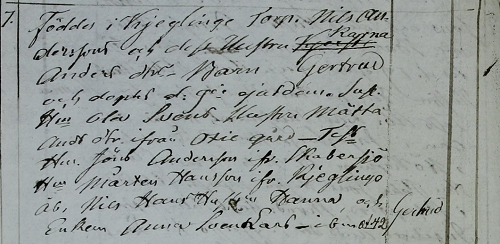 7. Föddes i Kjeglinge Torp. Nils An-
derssons och dess Hustru Karna
Anders dtr. Barn Gertrud
och döptes d. 9de ejusdem. Susc.
Hm Ola Svens Hustru Mätta
And. dtr. ifrån Oxie gård - Test.
Hm. Jöns Andersson ifr. Skabersjö
Hm Mårten Hansson ifr. Kjeglinge
åb. Nils Hans Hustru Hanna och
Enkan Anna Svens Lars - ibm åt 42 Gertrud